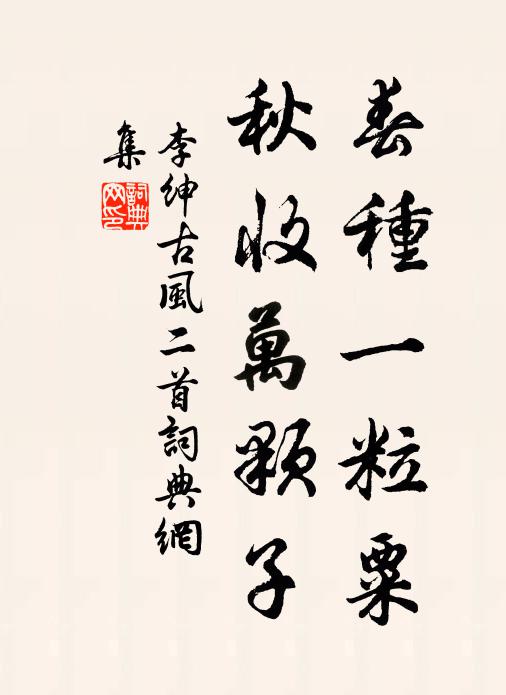 春種一粒粟
秋收萬顆子
李紳古風二首詞典網
集
詞典網印